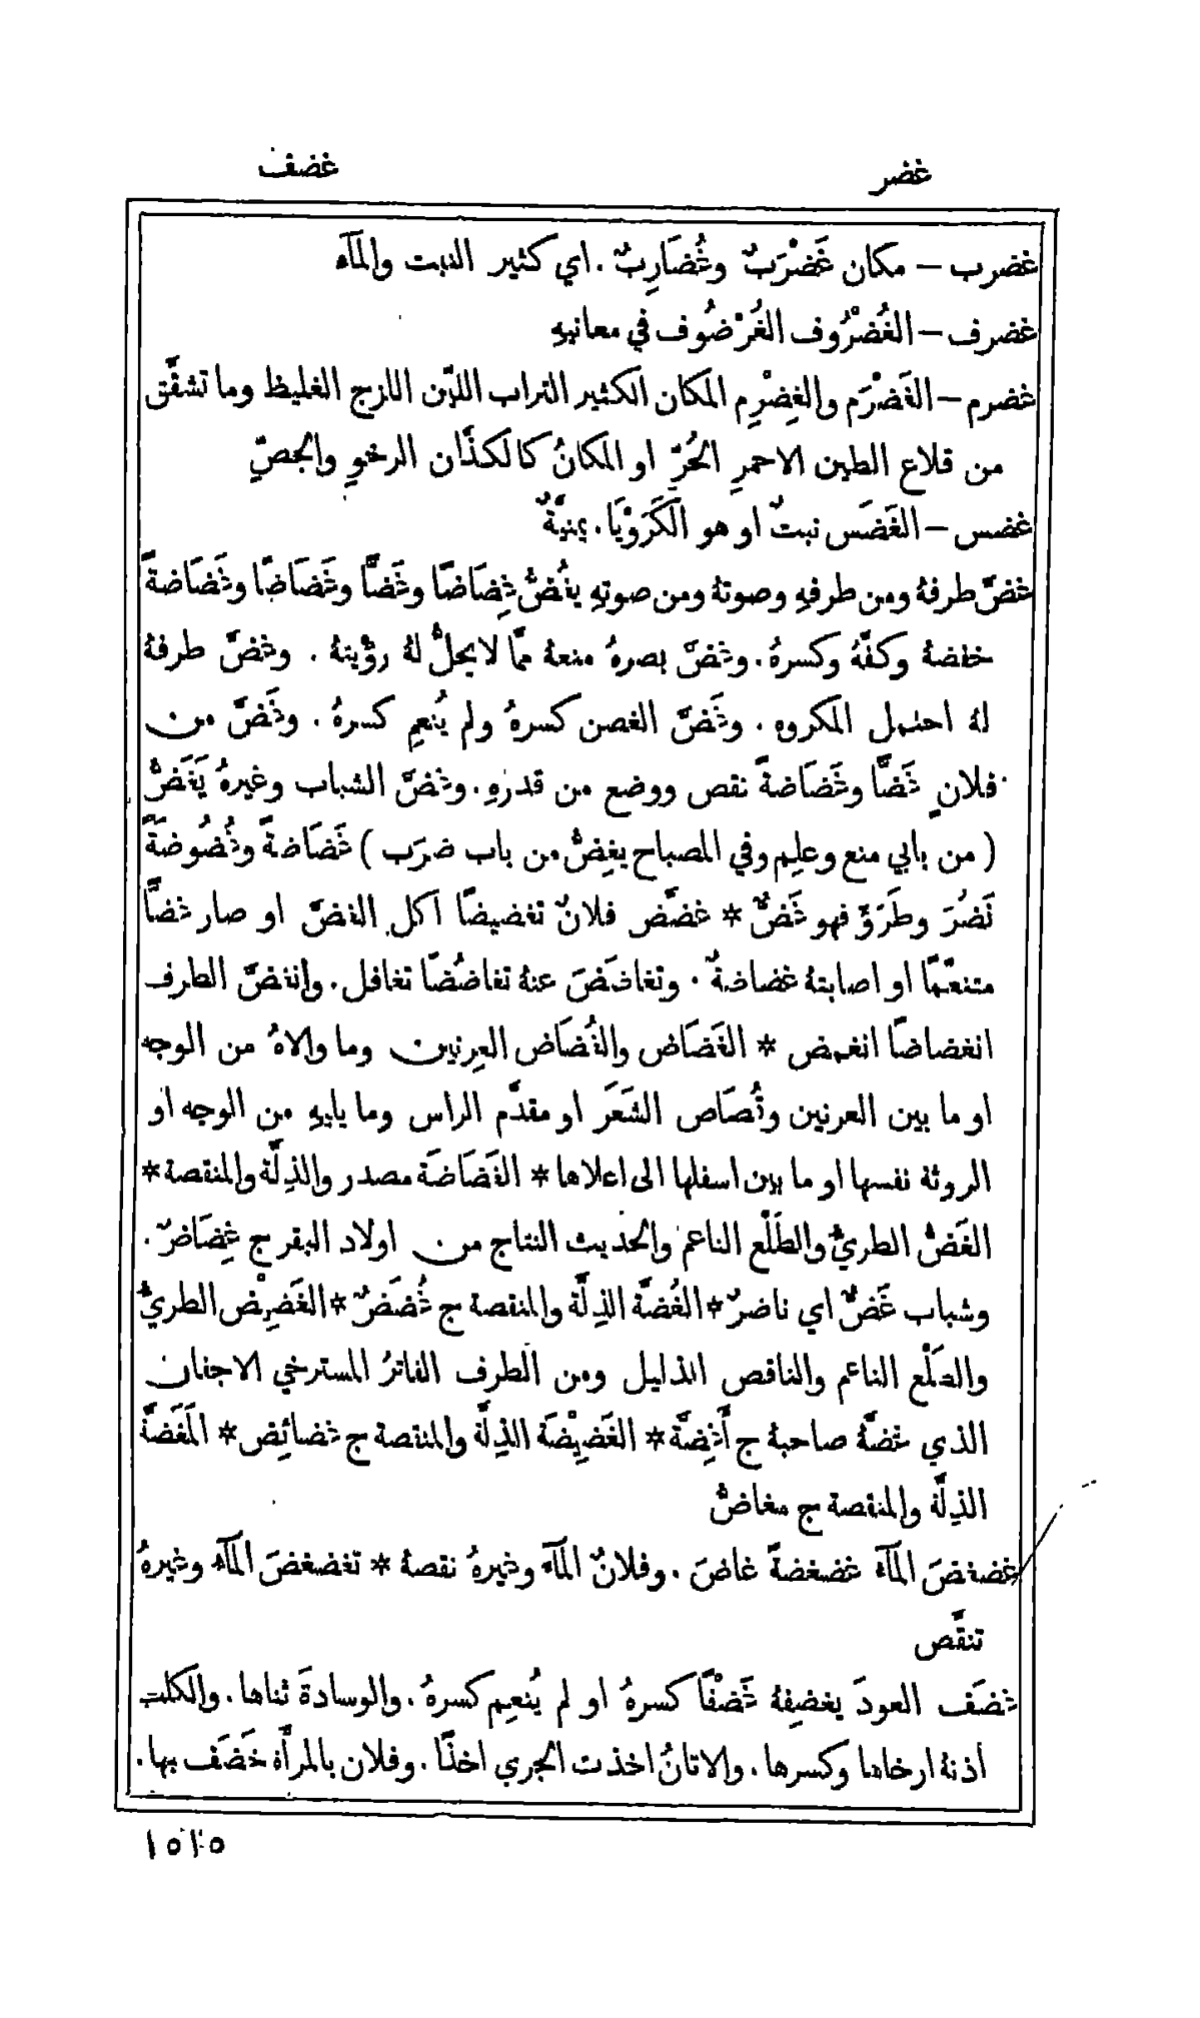 غضر
غضف
غضرب – مكان غَضْرَبٌ وغُضَارِبٌ . اي كثير النبت والمآء
غضرف – الغُضْرُوف الغُرْضُوف في معانيهِ
غضرم – الغَضْرَم والغِضْرِم المكان الكثير التراب الليّن اللازج الغليظ وما تشقَّق
من قلاع الطين الاحمرِ الحُرِّ او المكانُ كالكذَّان الرخوِ والجصِّ
غضس – الغَضَس نبتٌ او هو الكَرَوْيَا . يمنيَّةٌ
غضَّ طرفهُ ومن طرفهِ وصوتهُ ومن صوتهِ يغُضُّ غِضَاضًا وغَضًّا وغَضَاضًا وغَضَاضةً
خفضهُ وكفَّهُ وكسرهُ . وغضَّ بصرهُ منعهُ ممَّا لا يحلُّ لهُ رؤْيتهُ . وغضَّ طرفهُ
لهُ احتمل المكروه . وغَضَّ الغصن كسرهُ ولم يُنعِم كسرهُ . وغَضَّ من
فلانٍ غَضًّا وغَضَاضةً نقص ووضع من قدرهِ . وغضَّ الشباب وغيرهُ يَغَضُّ
( من بابي منع وعلِم وفي المصباح يغِضُّ من باب ضرَب ) غَضَاضةً وغُضُوضَةً
نَضُرَ وطَرَؤَ فهو غَضٌّ * غضَّض فلانٌ تغضيضًا اكل الغضّ او صار غضًّا
متنعّمًا او اصابتهُ غضاضةٌ . وتغاضَضَ عنهُ تغاضُضًا تغافل . وانغضَّ الطرف
انغضاضًا انغمض * الغَضَاض والغُضَاض العِرنين وما والاهُ من الوجه
او ما بين العرنين وقُصَاص الشَعَر او مقدَّم الراس وما يليهِ من الوجه او
الروثة نفسها او ما بين اسفلها الى اعلاها * الغَضَاضَة مصدر والذِلَّة والمنقصة *
الغَضُّ الطريُّ والطَلْع الناعم والحديث النتاج من اولاد البقر ج غِضَاضٌ .
وشباب غَضٌّ اي ناضرٌ * الغُضَّة الذِلَّة والمنقصة ج غُضَضٌ * الغَضِيْض الطريُّ
والطَلْع الناعم والناقص الذليل ومن الطرف الفاترُ المسترخي الاجفان
الذي غضَّهُ صاحبهُ ج أَغِضَّة * الغَضِيْضَة الذِلَّة والمنقصة ج غضائِض * المَغَضَّة
الذِلَّة والمنقصة ج مغاضُّ
غضغضَ المآء غضغضةً غاضَ . وفلانٌ المآءَ وغيرهُ نقصهُ * تغضغضَ المآء وغيرهُ
تنقَّص
غضَف العودَ يغضِفهُ غَضْفًا كسرهُ او لم يُنعِم كسرهُ . والوسادةَ ثناها . والكلب
اذنهُ ارخاها وكسرها . والاتانُ اخذت الجري اخذًا . وفلان بالمرأَة خَضَف بها .
١٥١٥